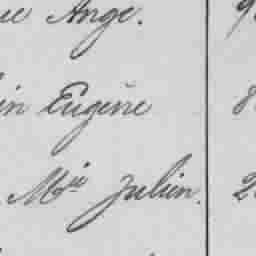 Ange.
in Eugène
Mie Julien.